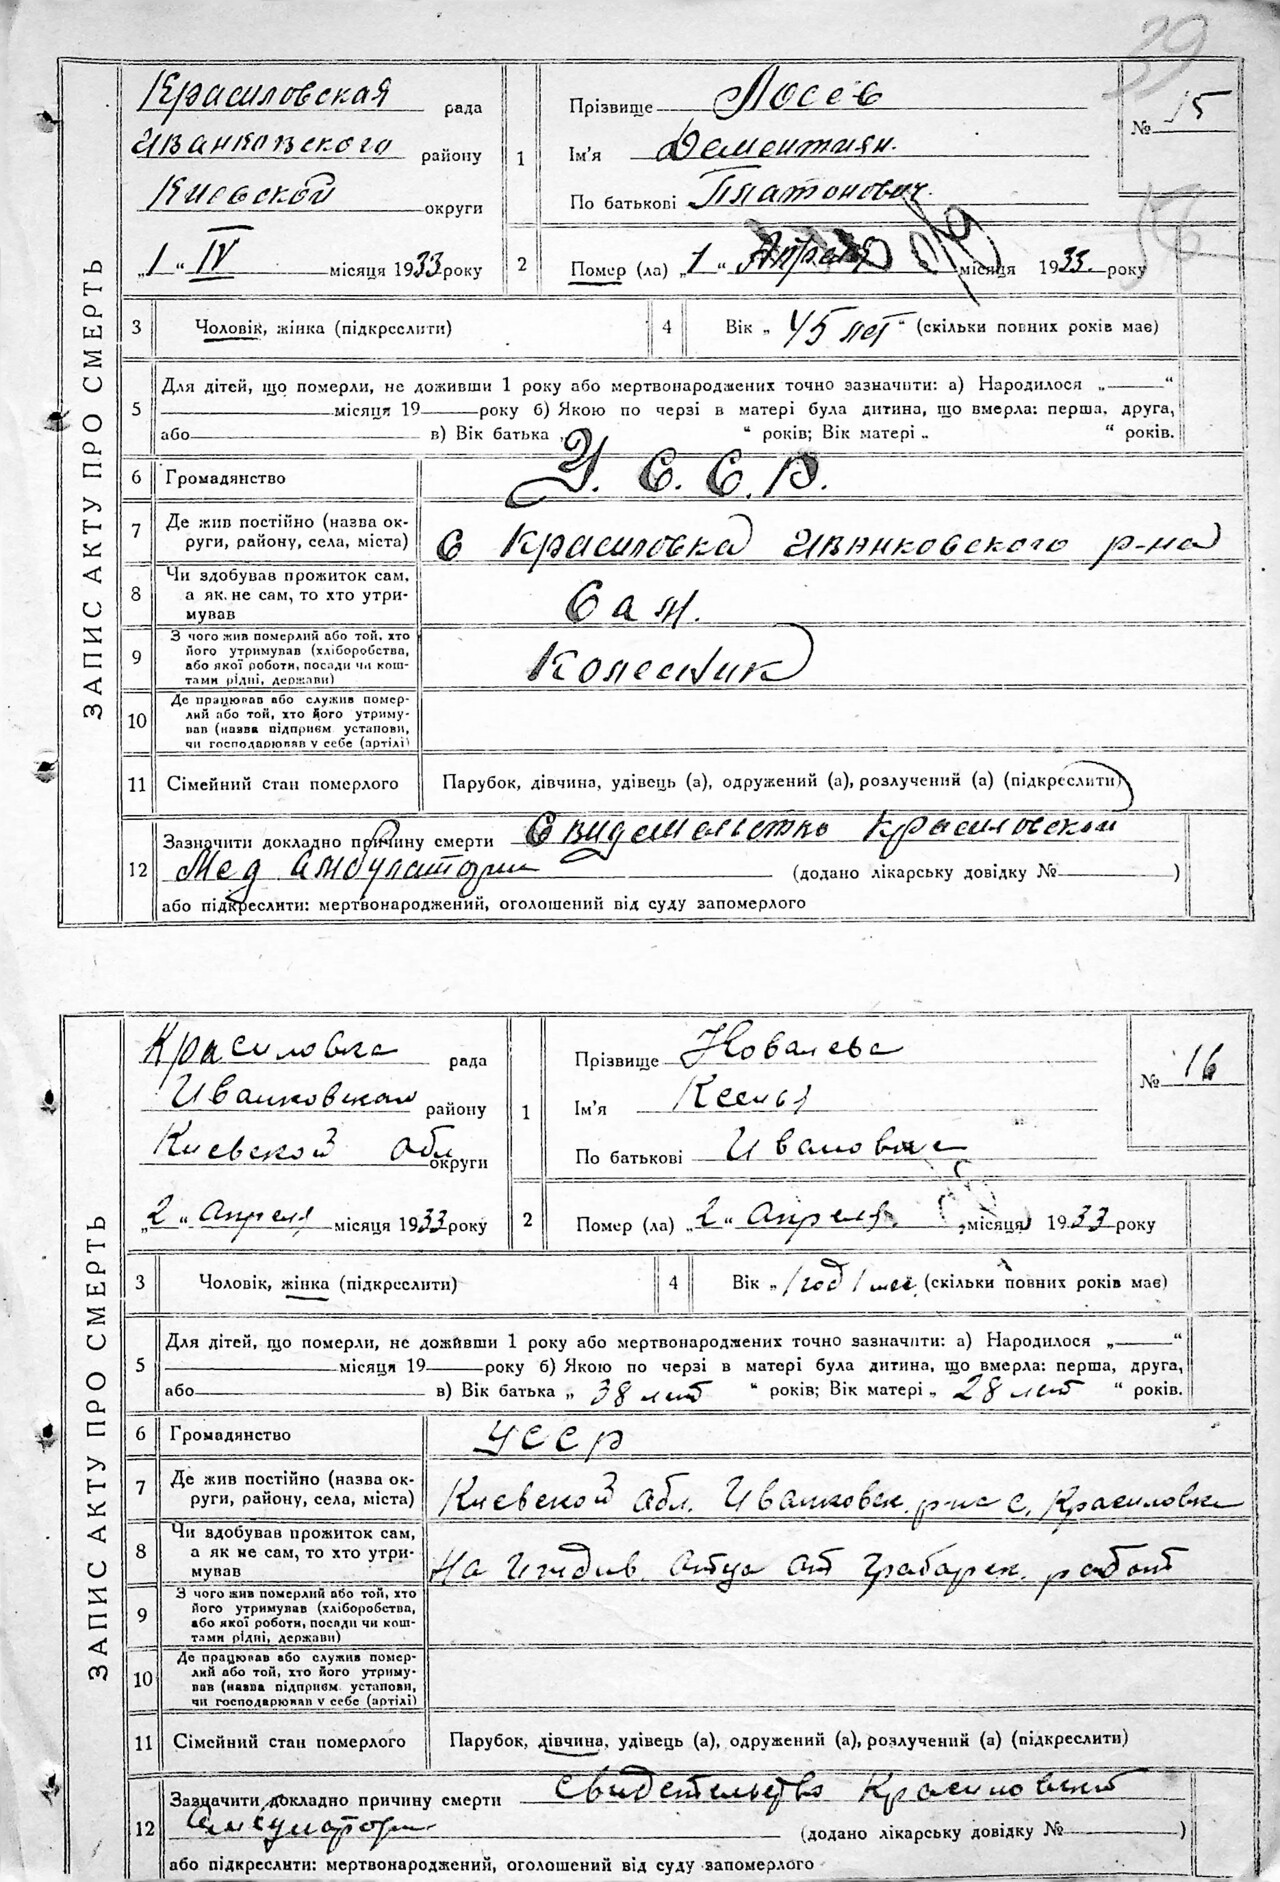 39
ЗАПИС АКТУ ПРО СМЕРТЬ
Красиловская рада
Иванковского району
Киевской округи
„1“ IV місяця 1933 року
1
Прізвище Лосев
Ім'я Дементиян.
По батькові Платонович.
№ 15
56
2
Помер (ла) „1“ Апреля місяця 1933. року
3 Чоловік, жінка (підкреслити)
4 Вік „45 лет“ (скільки повних років має)
5
Для дітей, що померли, не доживши 1 року або мертвонароджених точно зазначити: а) Народилося „ “
місяця 19 року б) Якою по черзі в матері була дитина, що вмерла: перша, друга,
або в) Вік батька „ “ років; Вік матері „ “ років.
6 Громадянство У. С. С. Р.
7 Де жив постійно (назва ок-
руги, району, села, міста) с Красиловка Иваиковского р-на
8 Чи здобував прожиток сам,
а як не сам, то хто утри-
мував Сам.
9 З чого жив померлий або той, хто
його утримував (хліборобства,
або якої роботи, посади чи кош-
тами рідні, держави) Колесник
10 Де працював або служив помер-
лий або той, хто його утриму-
вав (назва підприєм установи,
чи господарював у себе (артілі)
11 Сімейний стан померлого Парубок, дівчина, удівець (а), одружений (а), розлучений (а) (підкреслити)
12 Зазначити докладно причину смерти Свидетельство Красиловской
Мед Амбулатории (додано лікарську довідку № )
або підкреслити: мертвонароджений, оголошений від суду запомерлого
ЗАПИС АКТУ ПРО СМЕРТЬ
Красиловка рада
Иванковскаа району
Киевской обл округи
„2“ апреля місяця 1933 року
1
Прізвище Ковалева
Ім'я
По батькові Ивановна
№ 16
2
Помер (ла) „2“ апреля. місяця 1933 року
3 Чоловік, жінка (підкреслити)
4 Вік „1 год 1 мес. (скільки повних років має)
5
Для дітей, що померли, не доживши 1 року або мертвонароджених точно зазначити: а) Народилося „ “
місяця 19 року б) Якою по черзі в матері була дитина, що вмерла: перша, друга,
або в) Вік батька „38 лет“ років; Вік матері „28 лет“ років.
6 Громадянство УССР
7 Де жив постійно (назва ок-
руги, району, села, міста) Киевской обл. Иванковск. р-на с. Красиловка
8 Чи здобував прожиток сам,
а як не сам, то хто утри-
мував На Иждив. отца от грабарск. работ
9 З чого жив померлий або той, хто
його утримував (хліборобства,
або якої роботи, посади чи кош-
тами рідні, держави)
10 Де працював або служив помер-
лий або той, хто його утриму-
вав (назва підприєм. установи,
чи господарював у себе (артілі)
11 Сімейний стан померлого Парубок, дівчина, удівець (а), одружений (а), розлучений (а) (підкреслити)
12 Зазначити докладно причину смерти Свидетельство Красиловской
Амбулатории (додано лікарську довідку № )
або підкреслити: мертвонароджений, оголошений від суду запомерлого